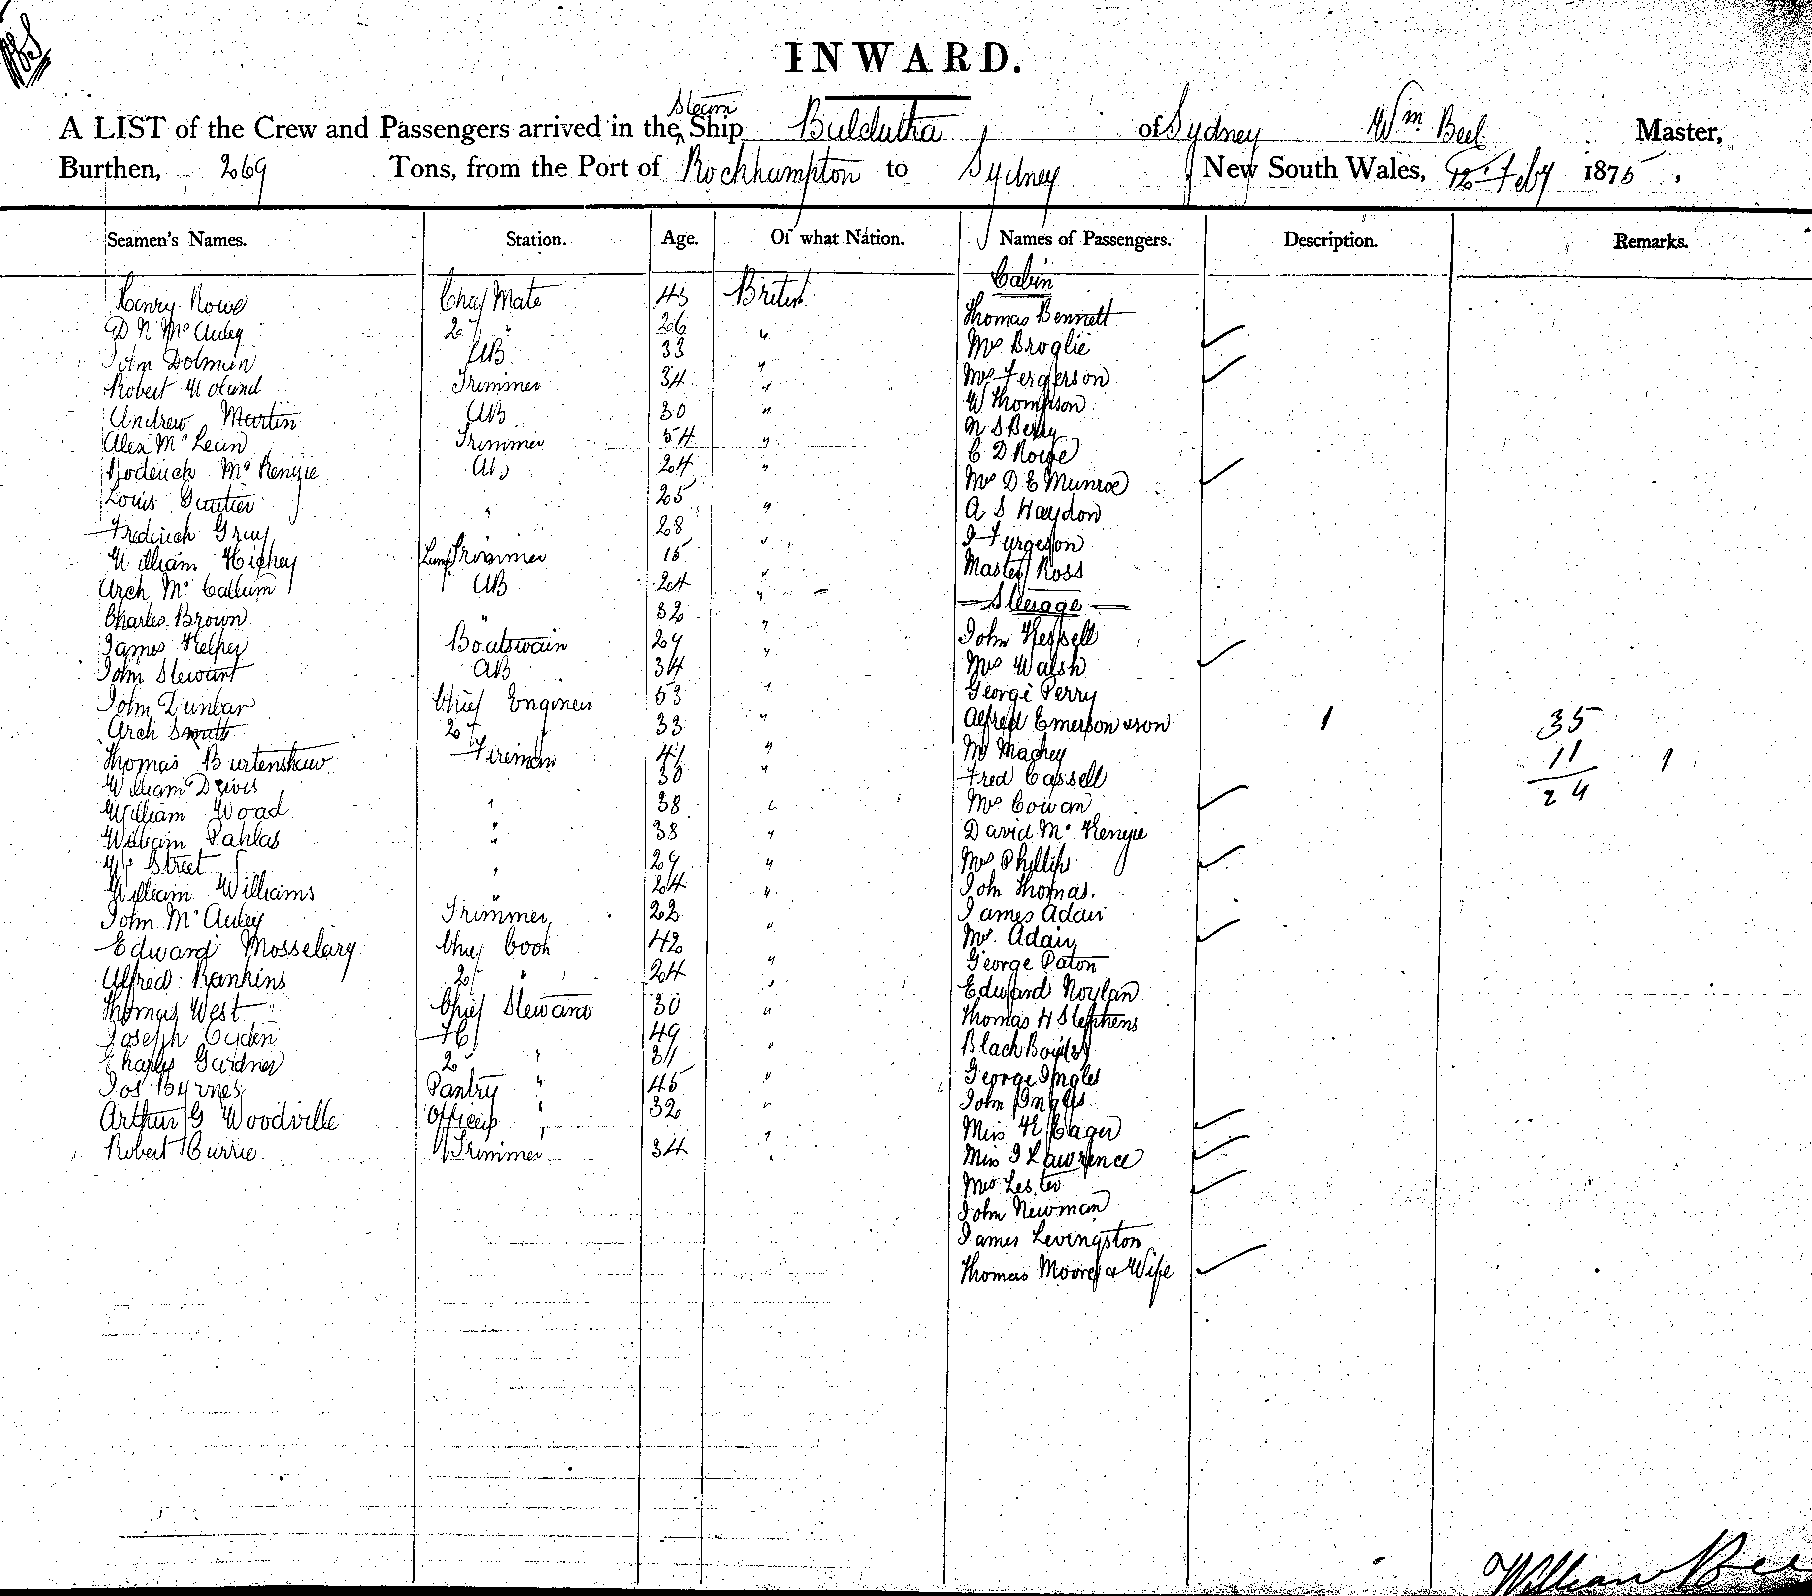 INWARD.
A LIST of the Crew and Passengers arrived in the Steam Ship Bulclutha of Sydney Wm Beel Master,
Burthen, 269 Tons, from the Port of Rockhampton to Sydney New South Wales, 12 Feby 1875,
Seamen's Names. Station. Age. Of what Nation. Names of Passengers. Description. Remarks.
Cabin
Henry Rowe Chief Mate 45 British Thomas Bennett
D N McAuley 2d " 26 " Mrs Broglie
John Dolman AB 33 " Mrs Fergerson
Robert Trimmer 34 " W Thompson
Andrew Martin AB 30 " N S Berry
Alex McLean Trimmer 54 " C D Rowe
Roderick McKenzie AB 24 " Mrs D E Munroe
Louis " 25 " A S Haydon
Frederick Gray 28 " J Furgeson
William Hickey Lamp Trimmer 15 " Master Ross
Arch McCallum AB 24 " Steerage
Charles Brown " 32 " John Keppell
James Kelper Boatswain 29 " Mrs Walsh
John Stewart AB 34 " George Perry
John Dunbar Chief Engineer 53 " Alfred Emerson & son 1 35
Arch Smith 2d " 33 " Mackey 11 1
Thomas Burtenshaw Fireman 41 " Fred Cassell 24
William Davis 30 " Mrs Cowan
William Woad " 38 " David McKenzie
William Pahlas " 38 " Mrs Phillips
Wm Street " 29 " John Thomas.
William Williams " 24 " James Adair
John McAuley Trimmer 22 " Mrs. Adair
Edward Mosselary Chief Cook 42 " George Paton
Alfred Rankins 2d " 24 " Edward Noylan
Thomas West Chief Steward 30 " Thomas H Stephens
Joseph 49 " Black Boy
Charles Gardner 2d " 31 " George Ingles
Jos Byrnes Pantry " 45 " John Ingles
Arthur G Woodville Officers " 32 " Miss Eager
Robert Currie Trimmer 34 " Miss J Lawrence
Mrs Lester
John Newman
James Levingston
Thomas Moore & Wife
William Bee